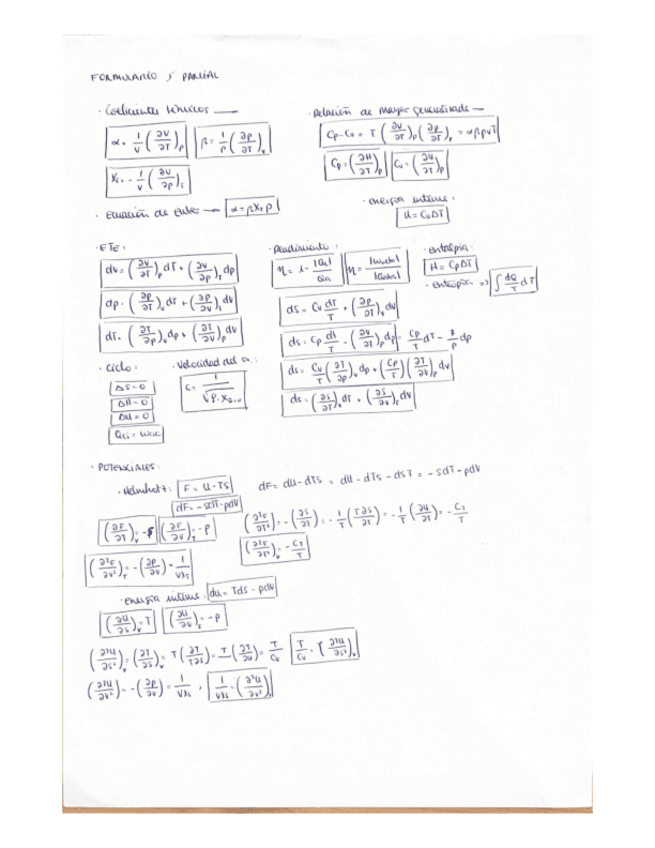 FORMULARIO 1er PARCIAL
· Coeficientes térmicos —
α = 1/V (∂V/∂T)_P   β = 1/P (∂P/∂T)_V
χ_T = - 1/V (∂V/∂P)_T
· Ecuación de Euler → α = βχ_T P
· Relación de Mayer generalizada —
Cp - Cv = T (∂V/∂T)_P (∂P/∂T)_V = αβPVT
Cp = (∂H/∂T)_P   Cv = (∂U/∂T)_P
· energía interna:
U = CvΔT
· FTE:
dV = (∂V/∂T)_P dT + (∂V/∂P)_T dp
dp = (∂P/∂T)_V dT + (∂P/∂V)_T dV
dT = (∂T/∂P)_V dp + (∂T/∂V)_P dV
· Rendimiento:
η = 1 - |Qc|/Qin   η = |Wneto|/|Qabs|
dS = Cv dT/T + (∂P/∂T)_V dV
dS = Cp dT/T - (∂V/∂T)_P dp
dS = Cv/T (∂T/∂P)_V dp + (Cp/T) (∂T/∂V)_P dV
dS = (∂S/∂T)_V dT + (∂S/∂V)_T dV
· entalpía:
H = CpΔT
· entropía => ∫ dQ/T dT
· Ciclo:
ΔS = 0
ΔH = 0
ΔU = 0
· Velocidad del
· POTENCIALES:
· Helmholtz: F = U - TS   dF = dU - dTS = dU - dTS - dST = - SdT - pdV
dF = - SdT - pdV
(∂F/∂T)_V = - S   (∂F/∂V)_T = - P   (∂²F/∂T²)_V = - (∂S/∂T)_V = - 1/T (T∂S/∂T) = - 1/T (∂U/∂T) = -
(∂²F/∂V²)_T = - (∂P/∂V)_T = 1/Vχ_T
· energía interna: dU = TdS - pdV
(∂U/∂S)_V = T   (∂U/∂V)_S = - P
(∂²U/∂S²)_V = (∂T/∂S)_V = T (∂T/T∂S) = T (∂T/∂U) = T/Cv   T/Cv = (∂²U/∂S²)_V
(∂²U/∂V²) = - (∂P/∂V) = 1/Vχ_S , 1/Vχ_S = (∂²U/∂V²)_S